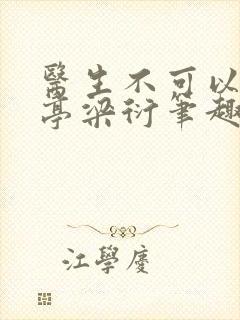 醫生不可以
亭梁衍筆趣
江學慶